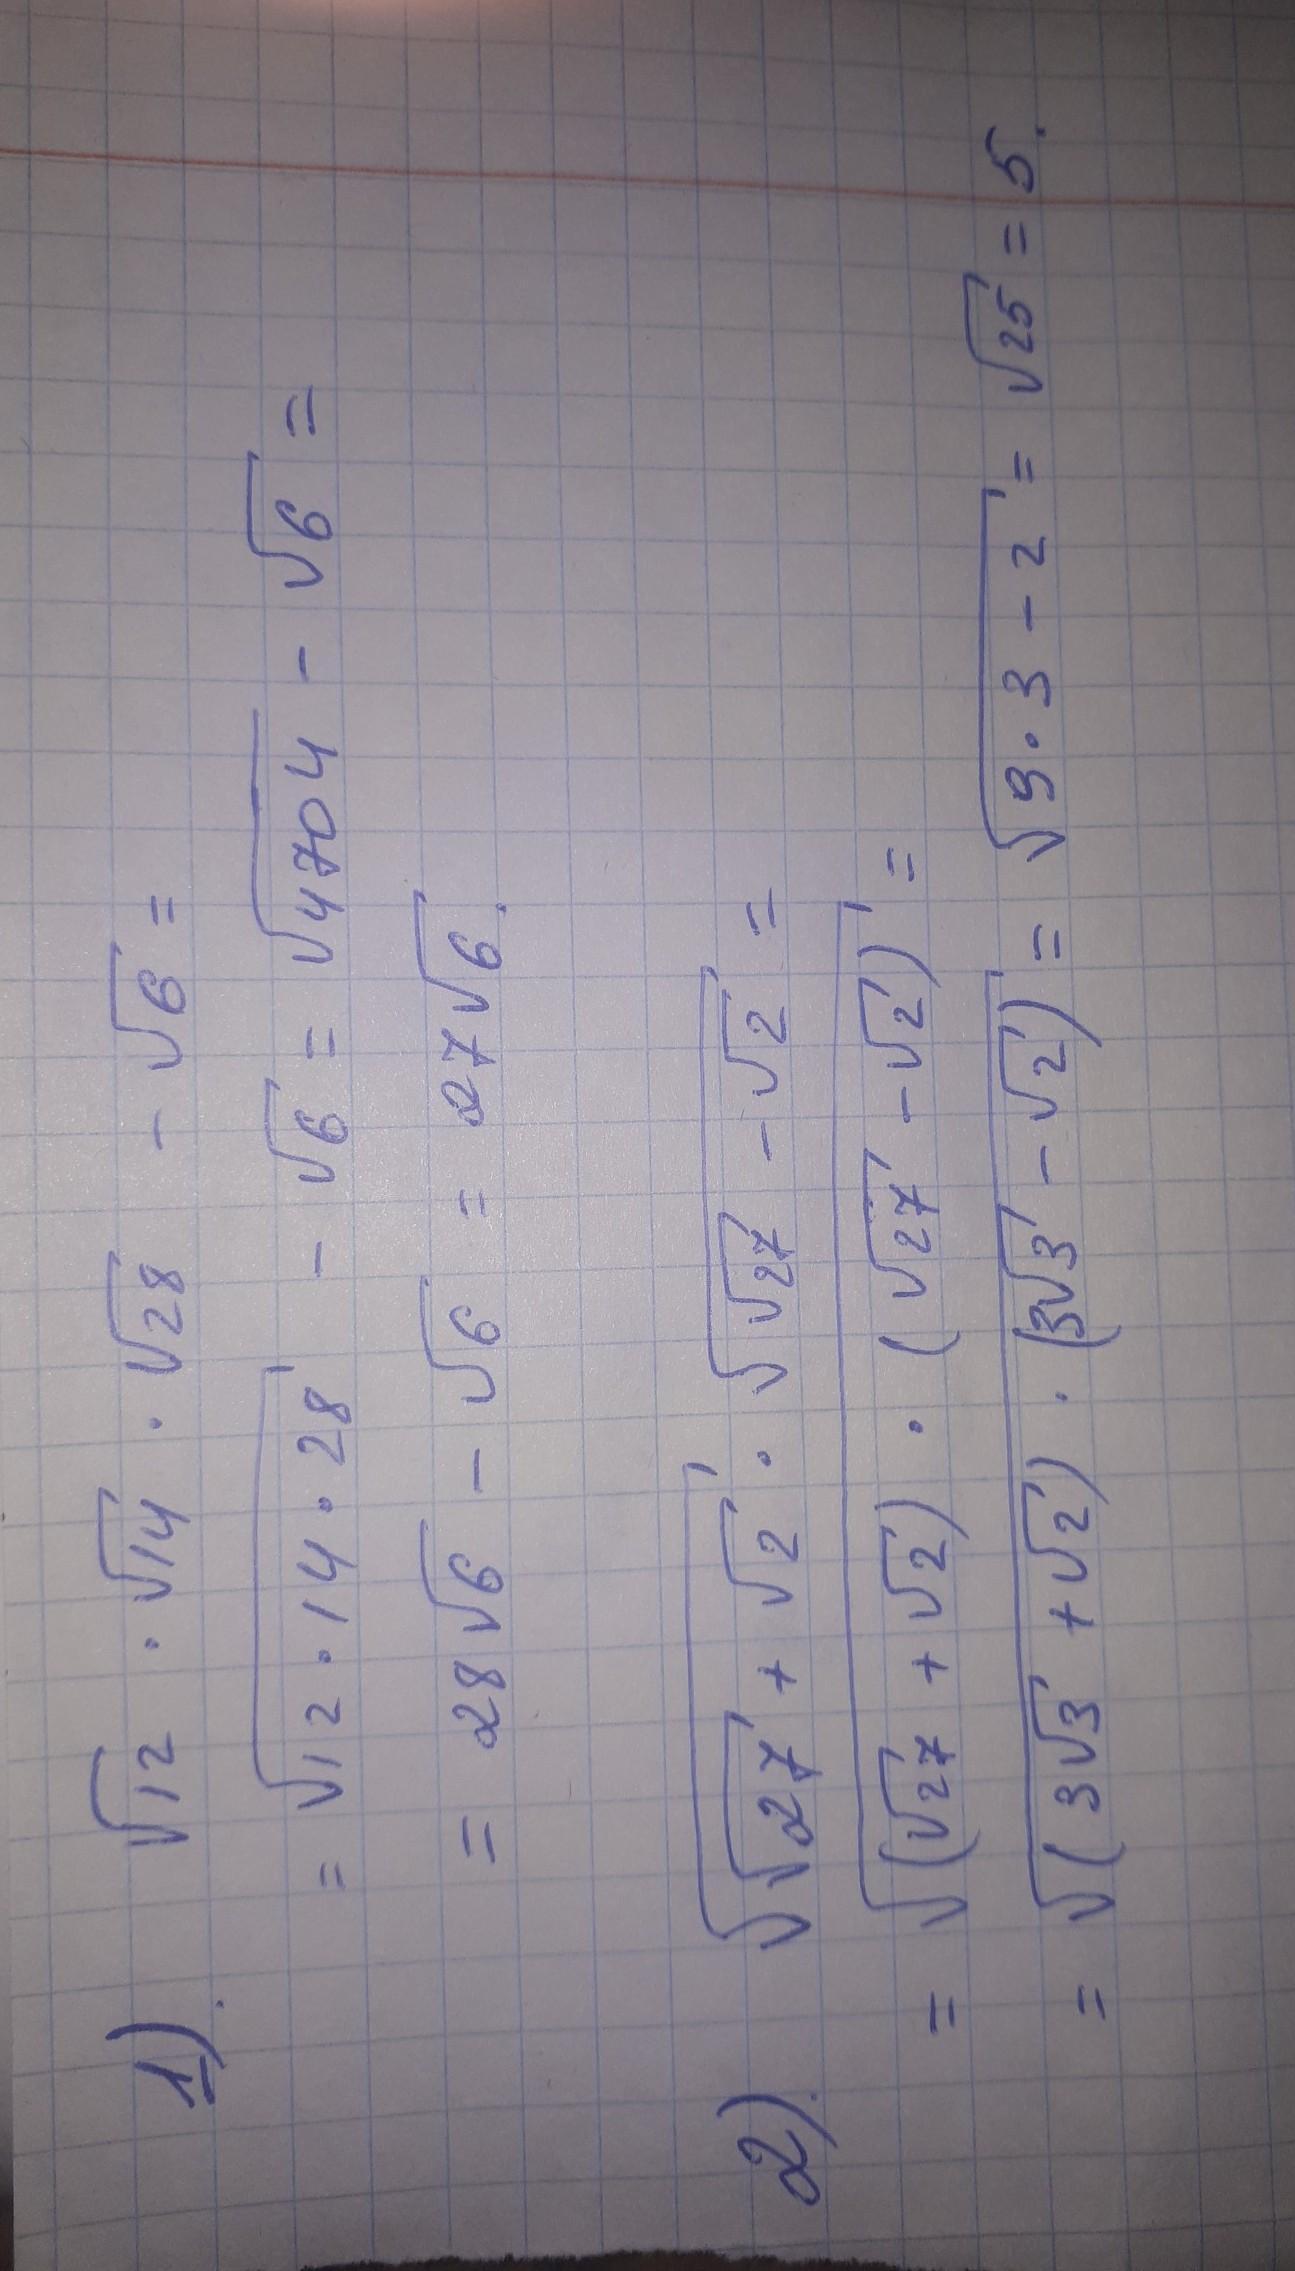 1). √12 · √14 · √28 - √6 =
= √(12 · 14 · 28) - √6 = √4704 - √6 =
= 28√6 - √6 = 27√6.
2). √(√27 + √2) · √(√27 - √2) =
= √((√27 + √2) · (√27 - √2)) =
= √((3√3 + √2) · (3√3 - √2)) = √(9 · 3 - 2) = √25 = 5.